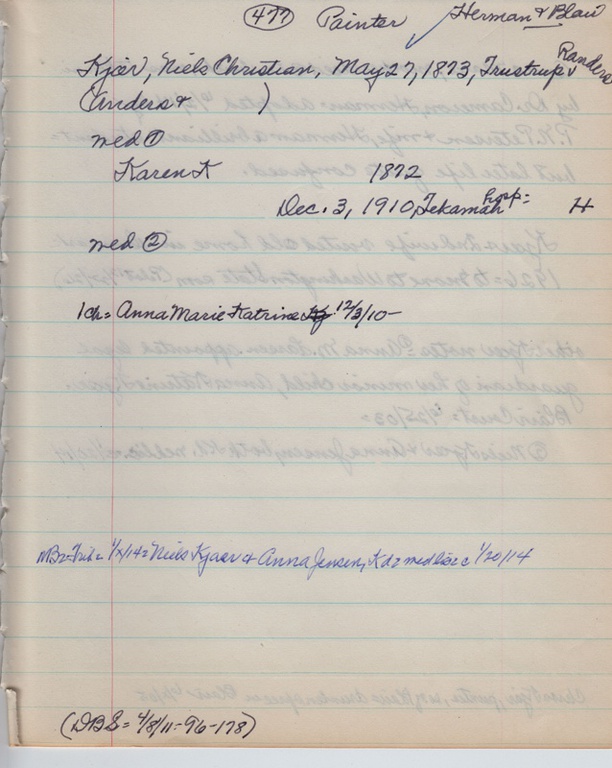 (477) Painter Herman & Blair
Kjær, Niels Christian, May 27, 1873, Trustrup, Randers
(Anders & )
med ①
Karen K 1872
Dec. 3, 1910, Tekamah hosp= H
med ②
1ch= Anna Marie Katrine 12/3/10-
Niels Kjaer & Anna Jensen, Kd= med lisc 1/20/14
(DBS= 4/8/11-96-178)